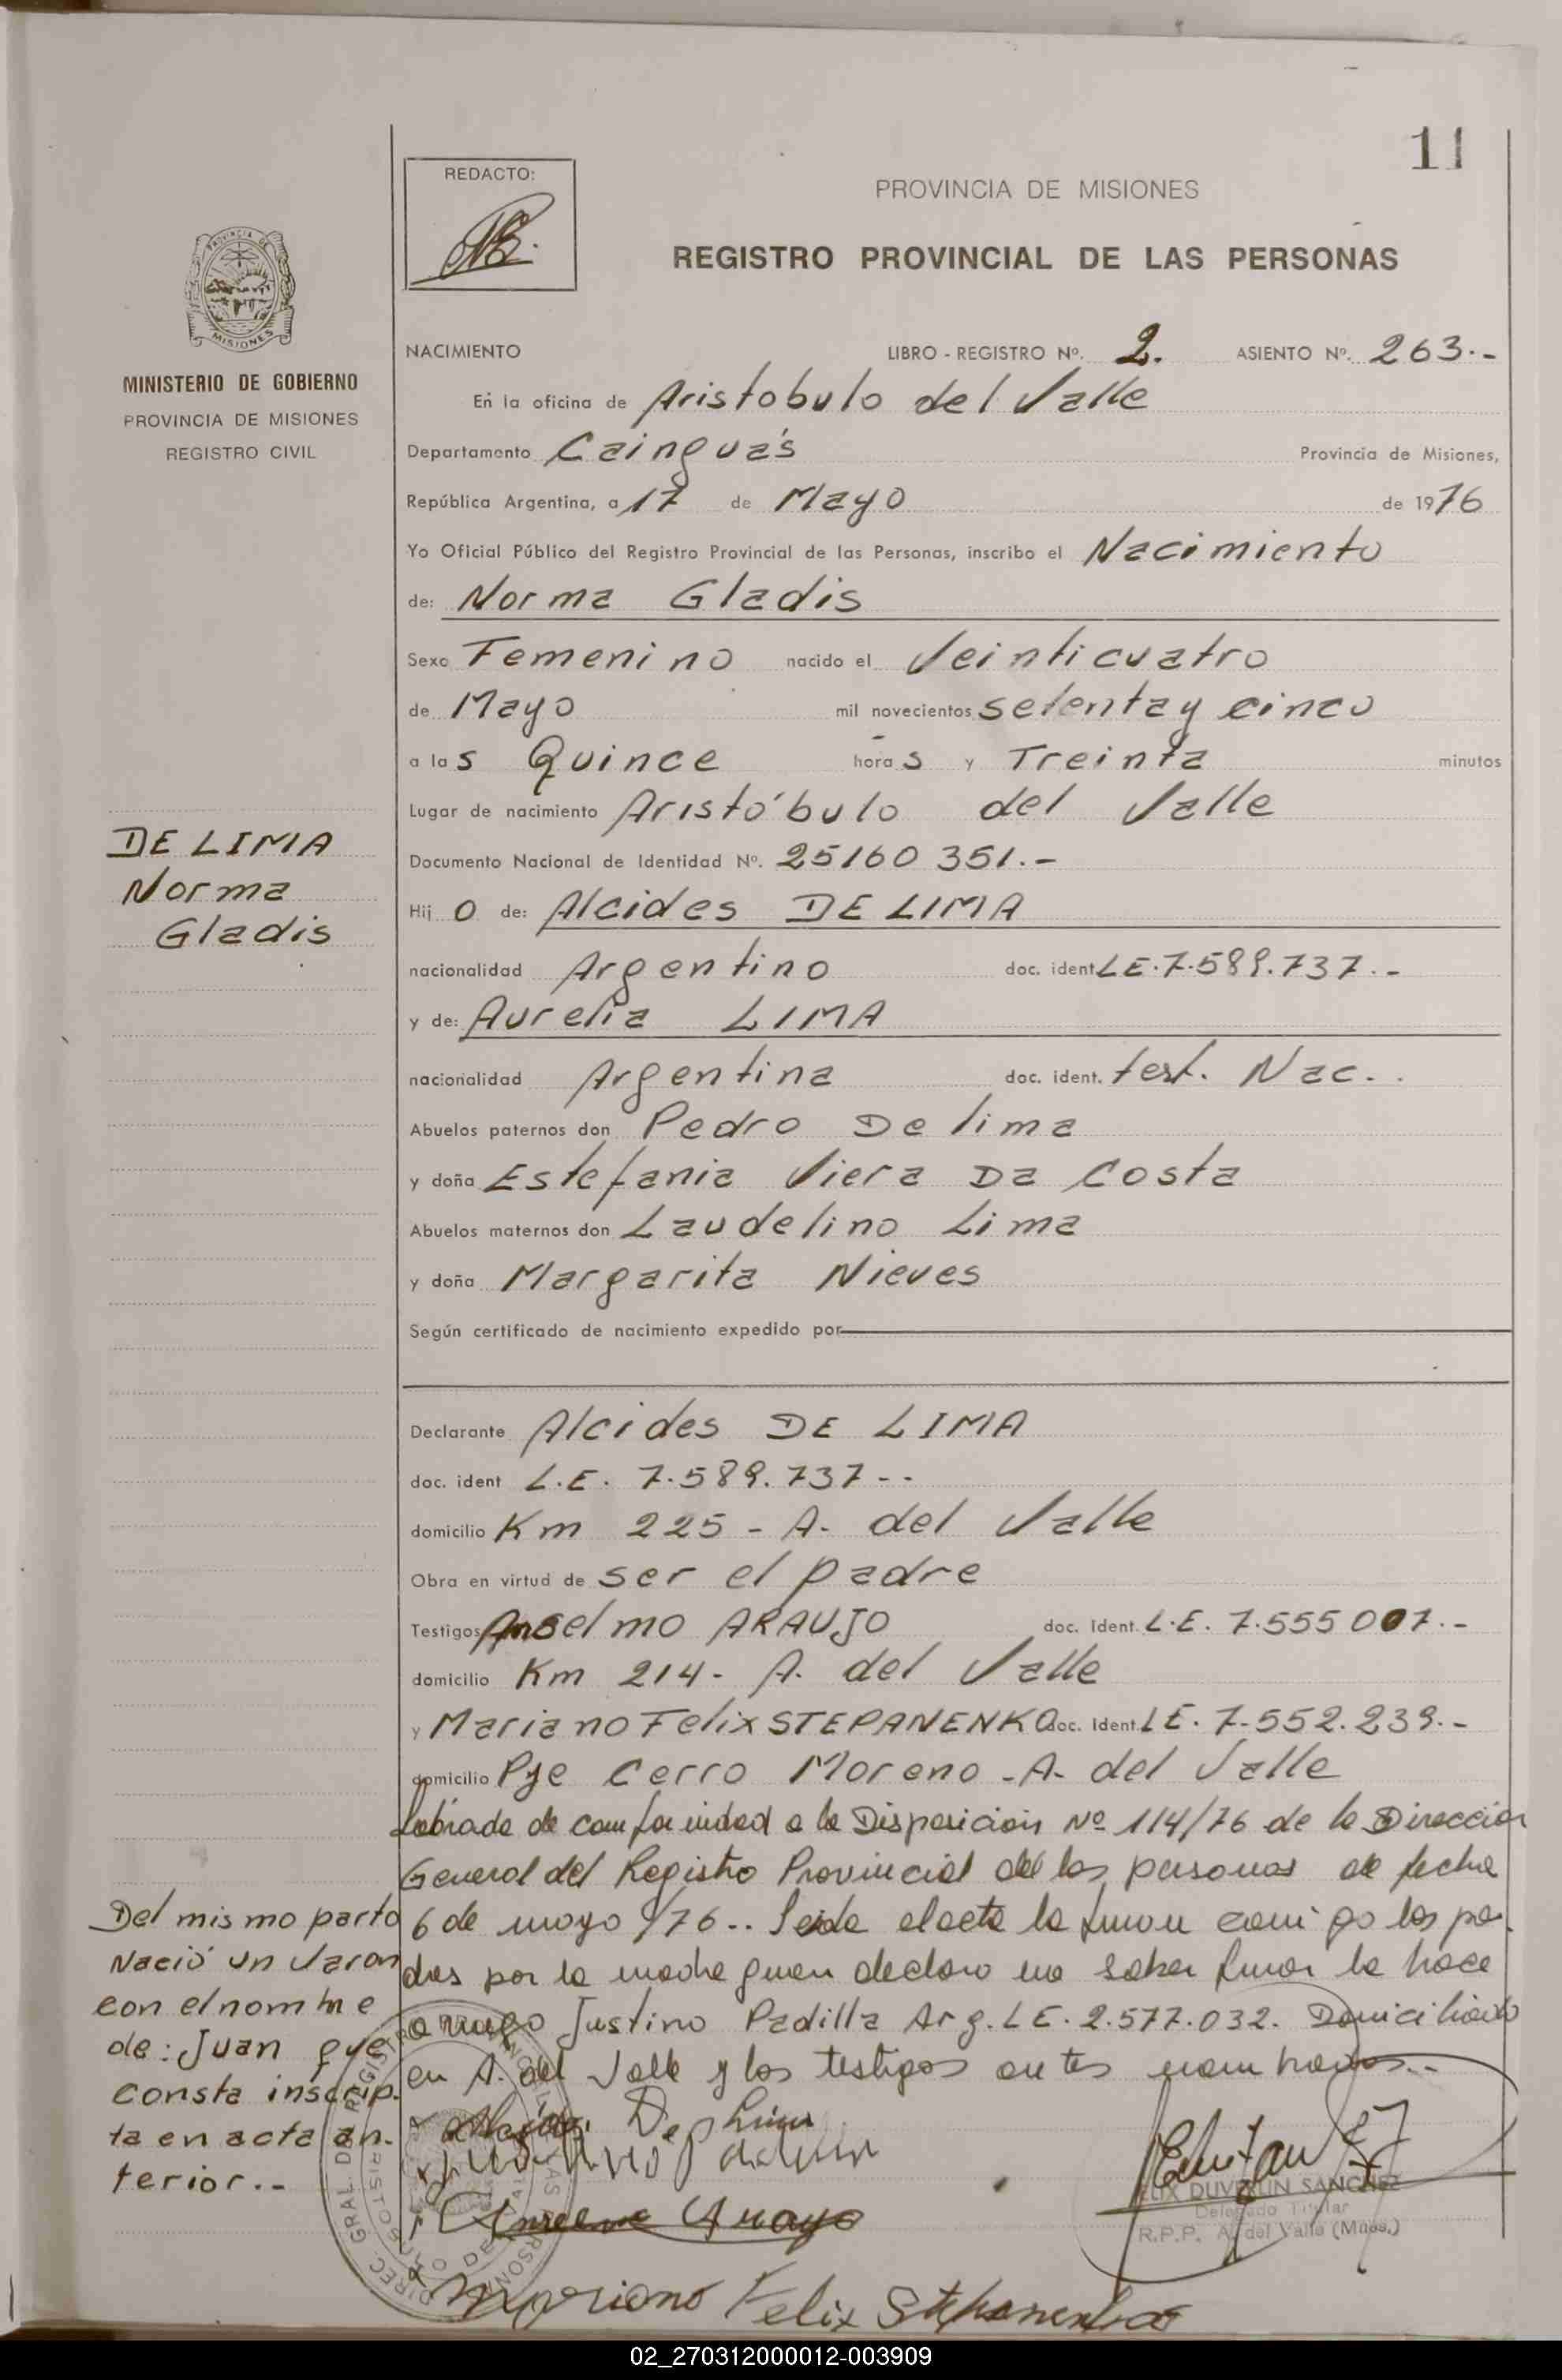 11
REDACTO:
PROVINCIA DE MISIONES
REGISTRO PROVINCIAL DE LAS PERSONAS
PROVINCIA DE
MISIONES
MINISTERIO DE GOBIERNO
PROVINCIA DE MISIONES
REGISTRO CIVIL
NACIMIENTO LIBRO - REGISTRO Nº. 2. ASIENTO Nº. 263.-
En la oficina de Aristobulo del Valle
Departamento Cainguás Provincia de Misiones,
República Argentina, a 17 de Mayo de 1976
Yo Oficial Público del Registro Provincial de las Personas, inscribo el Nacimiento
de: Norma Gladis
Sexo Femenino nacido el Veinticuatro
de Mayo mil novecientos setenta y cinco
a las Quince horas y Treinta minutos
Lugar de nacimiento Aristóbulo del Valle
Documento Nacional de Identidad Nº. 25160 351.-
Hij o de: Alcides DE LIMA
nacionalidad Argentino doc. ident LE.7.589.737.-
y de: Aurelia LIMA
nacionalidad Argentina doc. ident. test. Nac..
Abuelos paternos don Pedro De lima
y doña Estefania Viera Da Costa
Abuelos maternos don Laudelino Lima
y doña Margarita Nieves
Según certificado de nacimiento expedido por
Declarante Alcides DE LIMA
doc. ident L.E. 7.589.737--
domicilio Km 225 - A. del Valle
Obra en virtud de ser el padre
Testigos Anselmo ARAUJO doc. Ident. L.E. 7.555 007.-
domicilio Km 214- A. del Valle
y Mariano Felix STEPANENKO doc. Ident. LE. 7.552.239.-
domicilio Pje Cerro Moreno -A- del Valle
Labrada de conformidad a la Disposición Nº 114/76 de la Dirección
General del Registro Provincial de las personas de fecha
6 de mayo /76.. Leida el acta la firman conmigo los pa-
dres por la madre quien declaro no saber firmar lo hace
a ruego Justino Padilla Arg. LE. 2.577.032. Domiciliado
en A. del Valle y los testigos antes nombrados.-
DE LIMA
Norma
Gladis
Del mismo parto
Nació un Varon
con el nombre
de: Juan que
consta inscrip-
ta en acta an-
terior.-
Alcides De Lima
Mariano Felix Stepanenko
FELIX DUVERLIN SANCHEZ
Delegado Titular
R.P.P. A. del Valle (Mnes.)
02_270312000012-003909